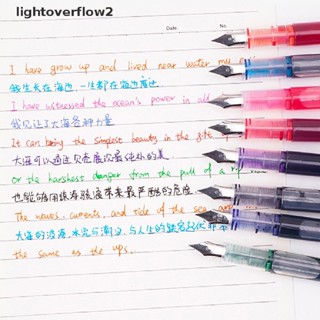 lightoverflow2
Date. No.
I have grow up and lived near water my
我生长在海边 一生都在海边度过
I have witnessed the ocean's power in all
我见证了大海各种力量
It can bring the simplest beauty in the gift
大海可以通过贝壳展示最纯朴的美
or the harshest danger from the pull of a
也能够用惊涛骇浪带来最严酷的危险
The waves, currents, and tide of the sea
大海的波浪、水流与潮汐，与人生的
the same as the ups.